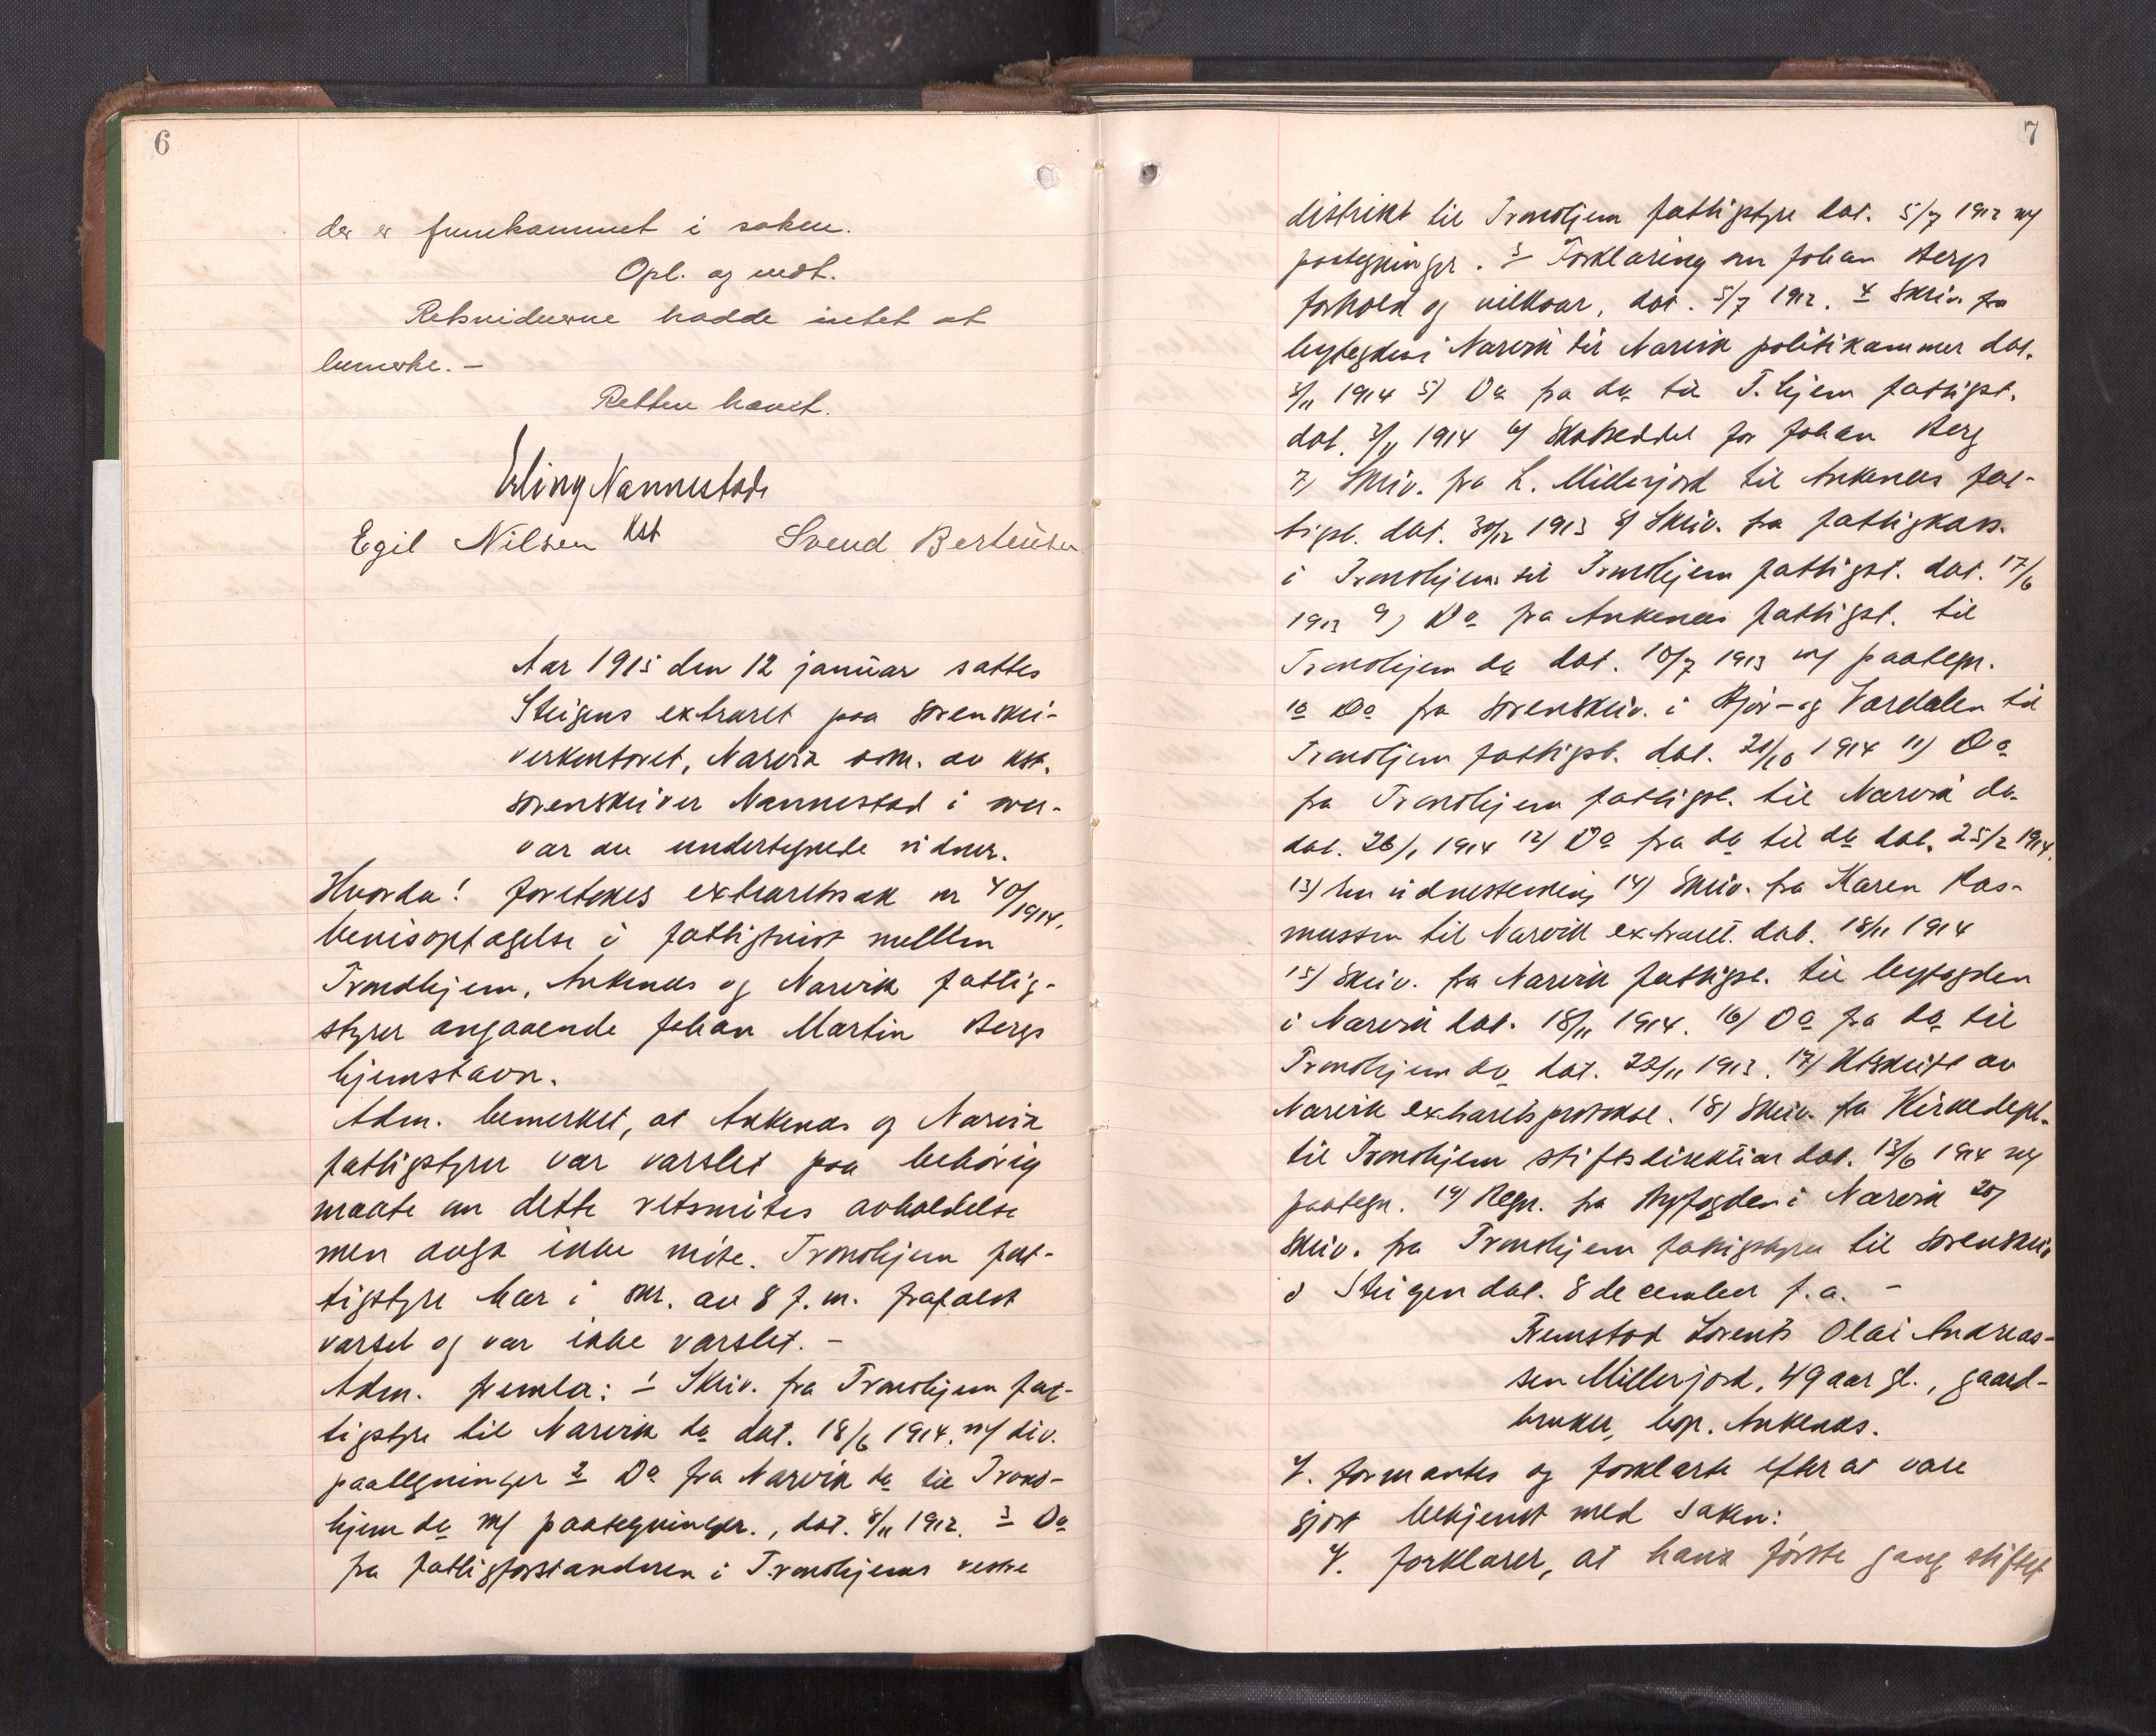 6
der er fremkommet i saken.
Opl. og vedt.
Retsvidnerne hadde intet at
bemerke. –
Retten hævet.
Erling Nannestad
Kst
Egil Nilsen Svend Bertensen
Aar 1915 den 12 januar sattes
Steigens extraret paa sorenskri-
verkontoret, Narvik adm. av kst.
sorenskriver Nannestad i over-
vær av undertegnede vidner.
Hvorda! foretokes extraretssak nr 40/1914.
bevisoptagelse i fattigtvist mellem
Trondhjem, Ankenes og Narvik fattig-
styrer angaaende Johan Martin Bergs
hjemstavn.
Adm. bemerket, at Ankenes og Narvik
fattigstyrer var varslet paa behørig
maate om dette retsmøtes avholdelse
men avga ikke møte. Trondhjem fat-
tigstyre har i skr. av 8 f.m. frafaldt
varsel og var ikke varslet. –
Adm. fremla: 1 Skriv. fra Trondhjem fat-
tigstyre til Narvik do dat. 18/6 1914. m/ div.
paategninger 2 Do fra Narvik do til Trond-
hjem do m/ paategninger., dat. 8/11 1912. 3 Do
fra fattigforstanderen i Trondhjems vestre
7
distrikt til Trondhjem fattigstyre dat. 5/7 1912 m/
paategninger. 3 Forklaring om Johan Bergs
forhold og vilkaar, dat. 5/7 1912. 4 Skriv. fra
byfogden i Narvik til Narvik politikammer dat.
3/11 1914 5) Do fra do til T.hjem fattigst.
dat. 3/11 1914 6) Skatseddel for Johan Berg
7) Skriv. fra L. Millerjord til Ankenes fat-
tigst. dat. 30/12 1913 8) Skriv. fra fattigkass.
i Trondhjem til Trondhjem fattigst. dat. 17/6
1913 9) Do fra Ankenes fattigst. til
Trondhjem do dat. 10/7 1913 m/ paategn.
10 Do fra sorenskriv. i Stjør- og Værdalen til
Trondhjem fattigst. dat. 21/10 1914 11) Do
fra Trondhjem fattigst. til Narvik do
dat. 26/1 1914 12) Do fra do til do dat. 25/2 1914.
13) En vidnestevning 14) Skriv. fra Karen Ras-
mussen til Narvik extraret. dat. 18/11 1914
15) Skriv. fra Narvik fattigst. til byfogden
i Narvik dat. 18/11 1914. 16) Do fra do til
Trondhjem do dat. 22/11 1913. 17) Utskrift av
Narvik extraretsprotokol. 18) Skriv. fra Kirkedept.
til Trondhjem stiftsdirektion dat. 13/6 1914 m/
paategn. 19) Regn. fra Byfogden i Narvik 20)
Skriv. fra Trondhjem fattigstyre til sorenskriv
i Steigen dat. 8 december f.a. –
Fremstod Lorents Olai Andreas-
sen Millerjord, 49 aar gl., gaard-
bruker, bop. Ankenes.
V. formantes og forklarte efter at være
gjort bekjent med saken:
V. forklarer, at hans første gang stiftet